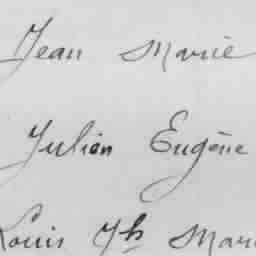 Jean Marie
Julien Eugène
Louis Jh Mari